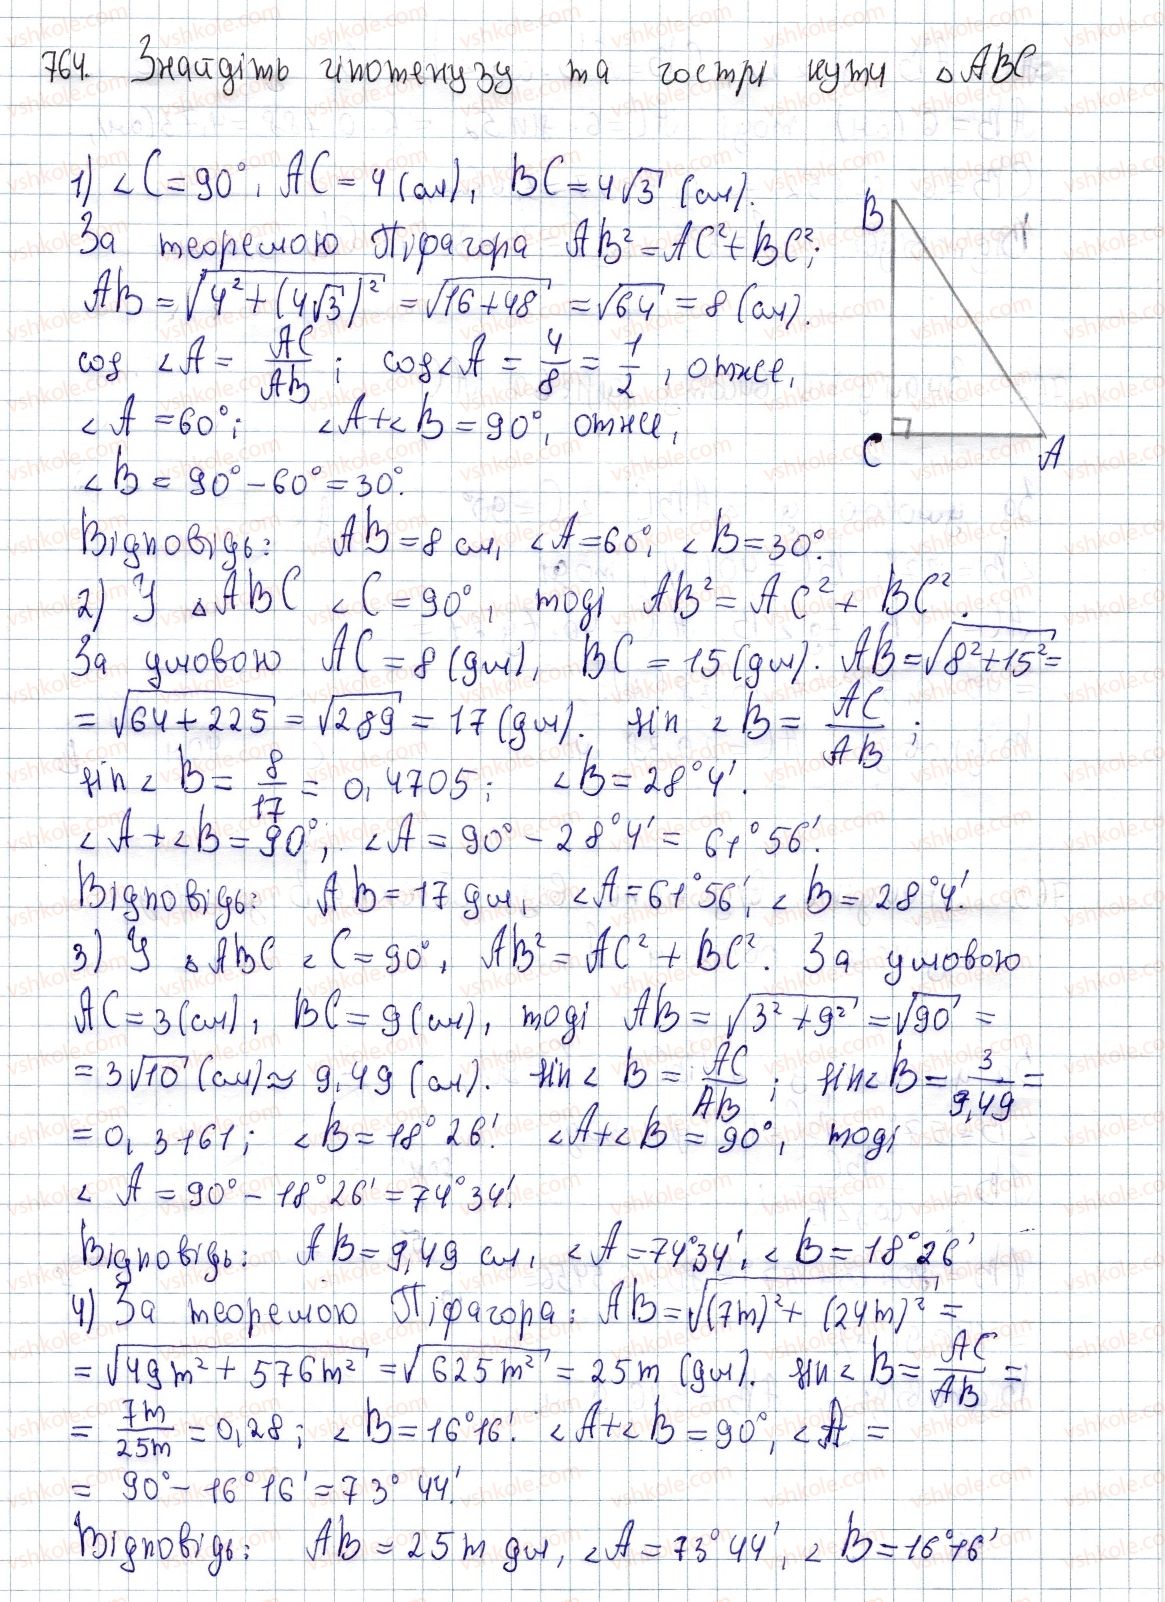 764. Знайдіть гіпотенузу та гострі кути △ABC
1) ∠C = 90°, AC = 4 (см), BC = 4√3 (см).
За теоремою Піфагора AB² = AC² + BC²;
AB = √(4² + (4√3)²) = √(16+48) = √64 = 8 (см).
cos ∠A = AC/AB; cos∠A = 4/8 = 1/2, отже,
∠A = 60°; ∠A+∠B = 90°, отже,
∠B = 90° – 60° = 30°.
B
C
A
Відповідь: AB = 8 см, ∠A = 60°, ∠B = 30°.
2) У △ABC ∠C = 90°, тоді AB² = AC² + BC².
За умовою AC = 8 (дм), BC = 15 (дм). AB = √(8²+15²) =
= √(64+225) = √289 = 17 (дм). sin ∠B = AC/AB;
sin∠B = 8/17 = 0,4705; ∠B = 28°4'.
∠A+∠B = 90°; ∠A = 90° – 28°4' = 61°56'.
Відповідь: AB = 17 дм, ∠A = 61°56', ∠B = 28°4'.
3) У △ABC ∠C = 90°, AB² = AC² + BC². За умовою
AC = 3 (см), BC = 9 (см), тоді AB = √(3²+9²) = √90 =
= 3√10 (см) ≈ 9,49 (см). sin∠B = AC/AB; sin∠B = 3/9,49 =
= 0,3161; ∠B = 18°26'. ∠A+∠B = 90°, тоді
∠A = 90° – 18°26' = 74°34'.
Відповідь: AB = 9,49 см, ∠A = 74°34', ∠B = 18°26'
4) За теоремою Піфагора: AB = √((7m)² + (24m)²) =
= √(49m² + 576m²) = √(625m²) = 25m (дм). sin∠B = AC/AB =
= 7m/25m = 0,28; ∠B = 16°16'. ∠A+∠B = 90°, ∠A =
= 90° – 16°16' = 73°44'.
Відповідь: AB = 25m дм, ∠A = 73°44', ∠B = 16°16'